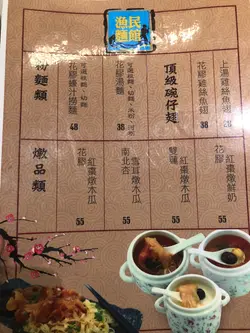 漁民
麵館
頂級碗仔翅
上湯雞絲魚翅 28
花膠雞絲魚翅 38
粉麵類
花膠湯麵 48
花膠蠔汁撈麵 48
燉品類
花膠
紅棗燉鮮奶 55
雙蓮
紅棗燉木瓜 55
南北杏
雪耳燉木瓜 55
花膠
紅棗燉木瓜 55